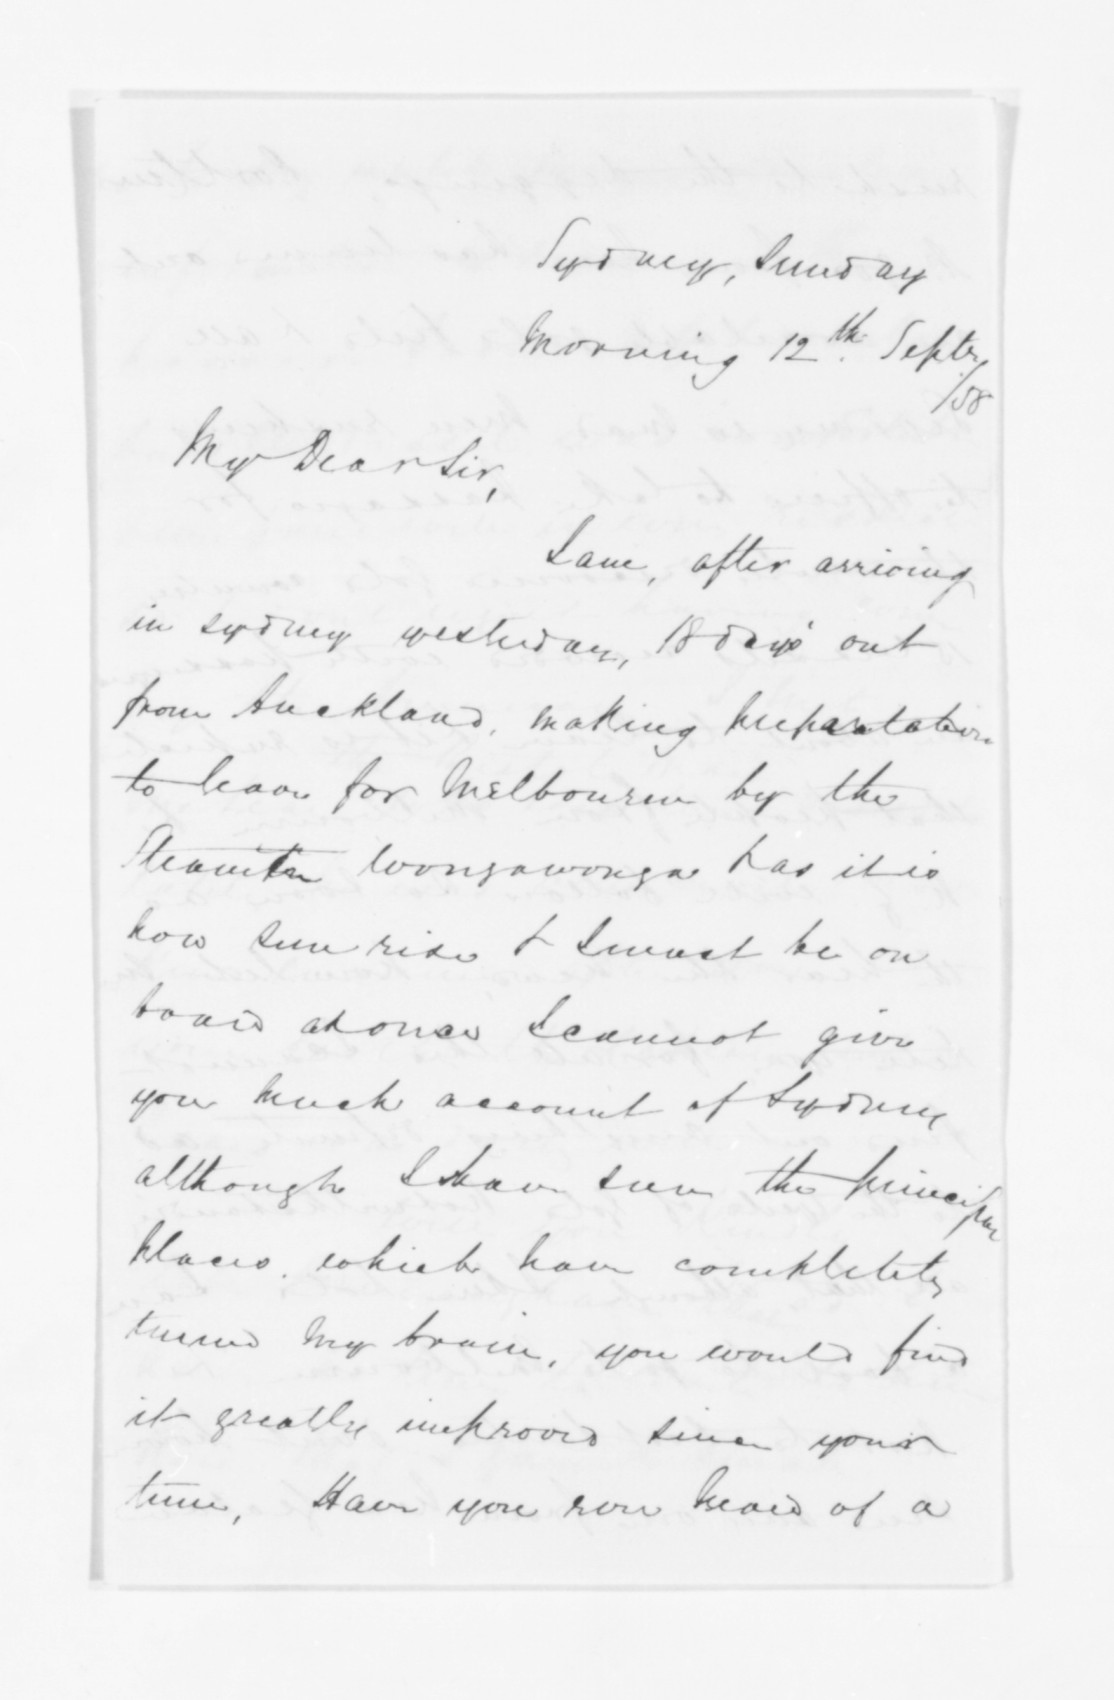 Sydney, Sunday
Morning 12th. Septr
/58
My Dear Sir,
I am, after arriving
in Sydney yesterday, 18 days out
from Auckland, making preparation
to leave for Melbourne by the
Steamer Wongawonga & as it is
now sun rise & I must be on
board at once I cannot give
you much account of Sydney
although I have seen the principal
places, which have completely
turned my brain, you would find
it greatly improved since your
time, Have you ever heard of a